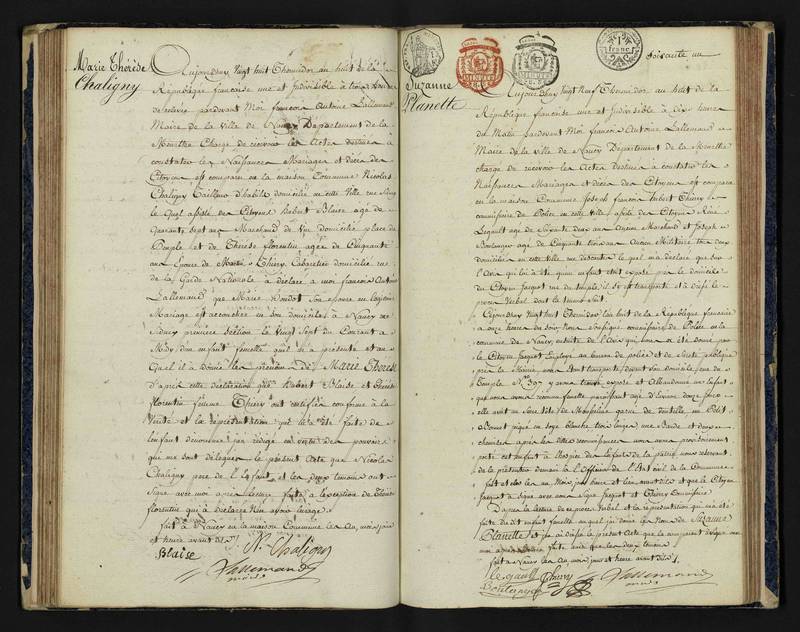 Marie Thérèse
Chaligny
Aujourdhuy Vingt huit Thermidor an huit de la
République françoise une et indivisible à
pardevant Moi françois Antoine Lallemand
Maire de la Ville de Nancy Département de la
Meurthe Chargé de recevoir les Actes destinés à
constater les Naissances Mariages et décès des
Citoyens est comparu en la maison Commune Nicolas
Chaligny Tailleur d'habits domicilié en cette Ville rue
lequel assisté des Citoyens hubert Blaise agé de
quarante sept ans Marchand de Vin domicilié place du
Peuple et de Thérèse florentin agée de Cinquante
ans épouse de Thiery Cabaretier domicilié rue
de la Garde Nationale a déclaré a moi françois Antoine
Lallemand que Marie son épouse en légitime
Mariage est accouchée en son domicile à Nancy rue
première Section le Vingt Sept du Courant a
Midy d'un enfant femelle qu'il m'a présenté et au
quel il a donné les prénoms de Marie Thérèse
d'après cette déclaration que hubert Blaise et Thérèse
florentin femme Thiery ont certifiée conforme à la
Vérité et la représentation qui m'a été faite de
l'enfant dénommé j'ai rédigé en vertu des pouvoirs
qui me sont délégués le présent Acte que Nicolas
Chaligny pere de l'Enfant et les deux témoins ont
Signé avec moi après lecture faite à l'exception de Thérèse
florentin qui a déclaré n'en avoir l'usage.
fait à Nancy en la maison Commune les an, mois, jour
et heure avant dits
Blaise N. Chaligny
Lallemand
maire
1
franc
Soixante un
Suzanne
Planette
Aujourdhuy Vingt Neuf Thermidor an huit de la
République françoise une et Indivisible à Dix heures
du Matin pardevant Moi françois Antoine Lallemand
Maire de la ville de Nancy Département de la Meurthe
chargé de recevoir les Actes destinés à constater les
Naissances Mariages et décès des Citoyens est comparu
en la maison Commune Joseph françois hubert Thiery
commissaire de Police en cette ville assisté des Citoyens René
Legault agé de Soixante deux ans Ancien Marchand et Joseph
Boulanger agé de Cinquante trois ans Ancien Militaire tous deux
domiciliés en cette ville lequel m'a déclaré que Sur
l'Avis qui lui a été donné qu'un enfant était exposé près le domicile
du Citoyen Jacquot rue du temple il s'y est transporté et a dressé le
procès Verbal dont la teneur Suit.
Cejourdhuy Vingt huit Thermidor an huit de la République françoise
a onze heures du Soir Nous Commissaire de Police en la
commune de Nancy ensuite de l'Avis qui nous a été donné par
le Citoyen Jacquot Employé au bureau de police et de Sureté publique
près la Mairie nous nous Sommes transportés devant Son domicile rue du
Temple N° 307 y avons trouvé exposé et Abandonné un Enfant
que nous avons reconnu femelle paroissant agé d'Environ douze jours
elle avoit un Serre tête de Mousseline garni de dentelle un Petit
Bonnet piqué en soye blanche trois langes une Bande et deux
chemises après les dittes reconnoissances nous avons provisoirement
porté cet enfant à l'hospice des Enfants de la patrie nous réservant
de le présenter demain à l'Officier de l'Etat civil de la Commune
fait et clos les an Mois jour heure et lieu avant dits et que le Citoyen
Jacquot a Signé avec nous Signé Jacquot et Thiery Commissaire
D'après la lecture de ce procès Verbal et la représentation qui m'a été
faite dudit enfant femelle auquel j'ai donné les Noms de Suzanne
Planette et j'ai dressé le présent Acte que le comparant a signé avec
moi après lecture faite ainsi que les deux témoins
fait à Nancy les an, mois, jour et heure avant dits
Legault Thiery Lallemand
Boulanger maire